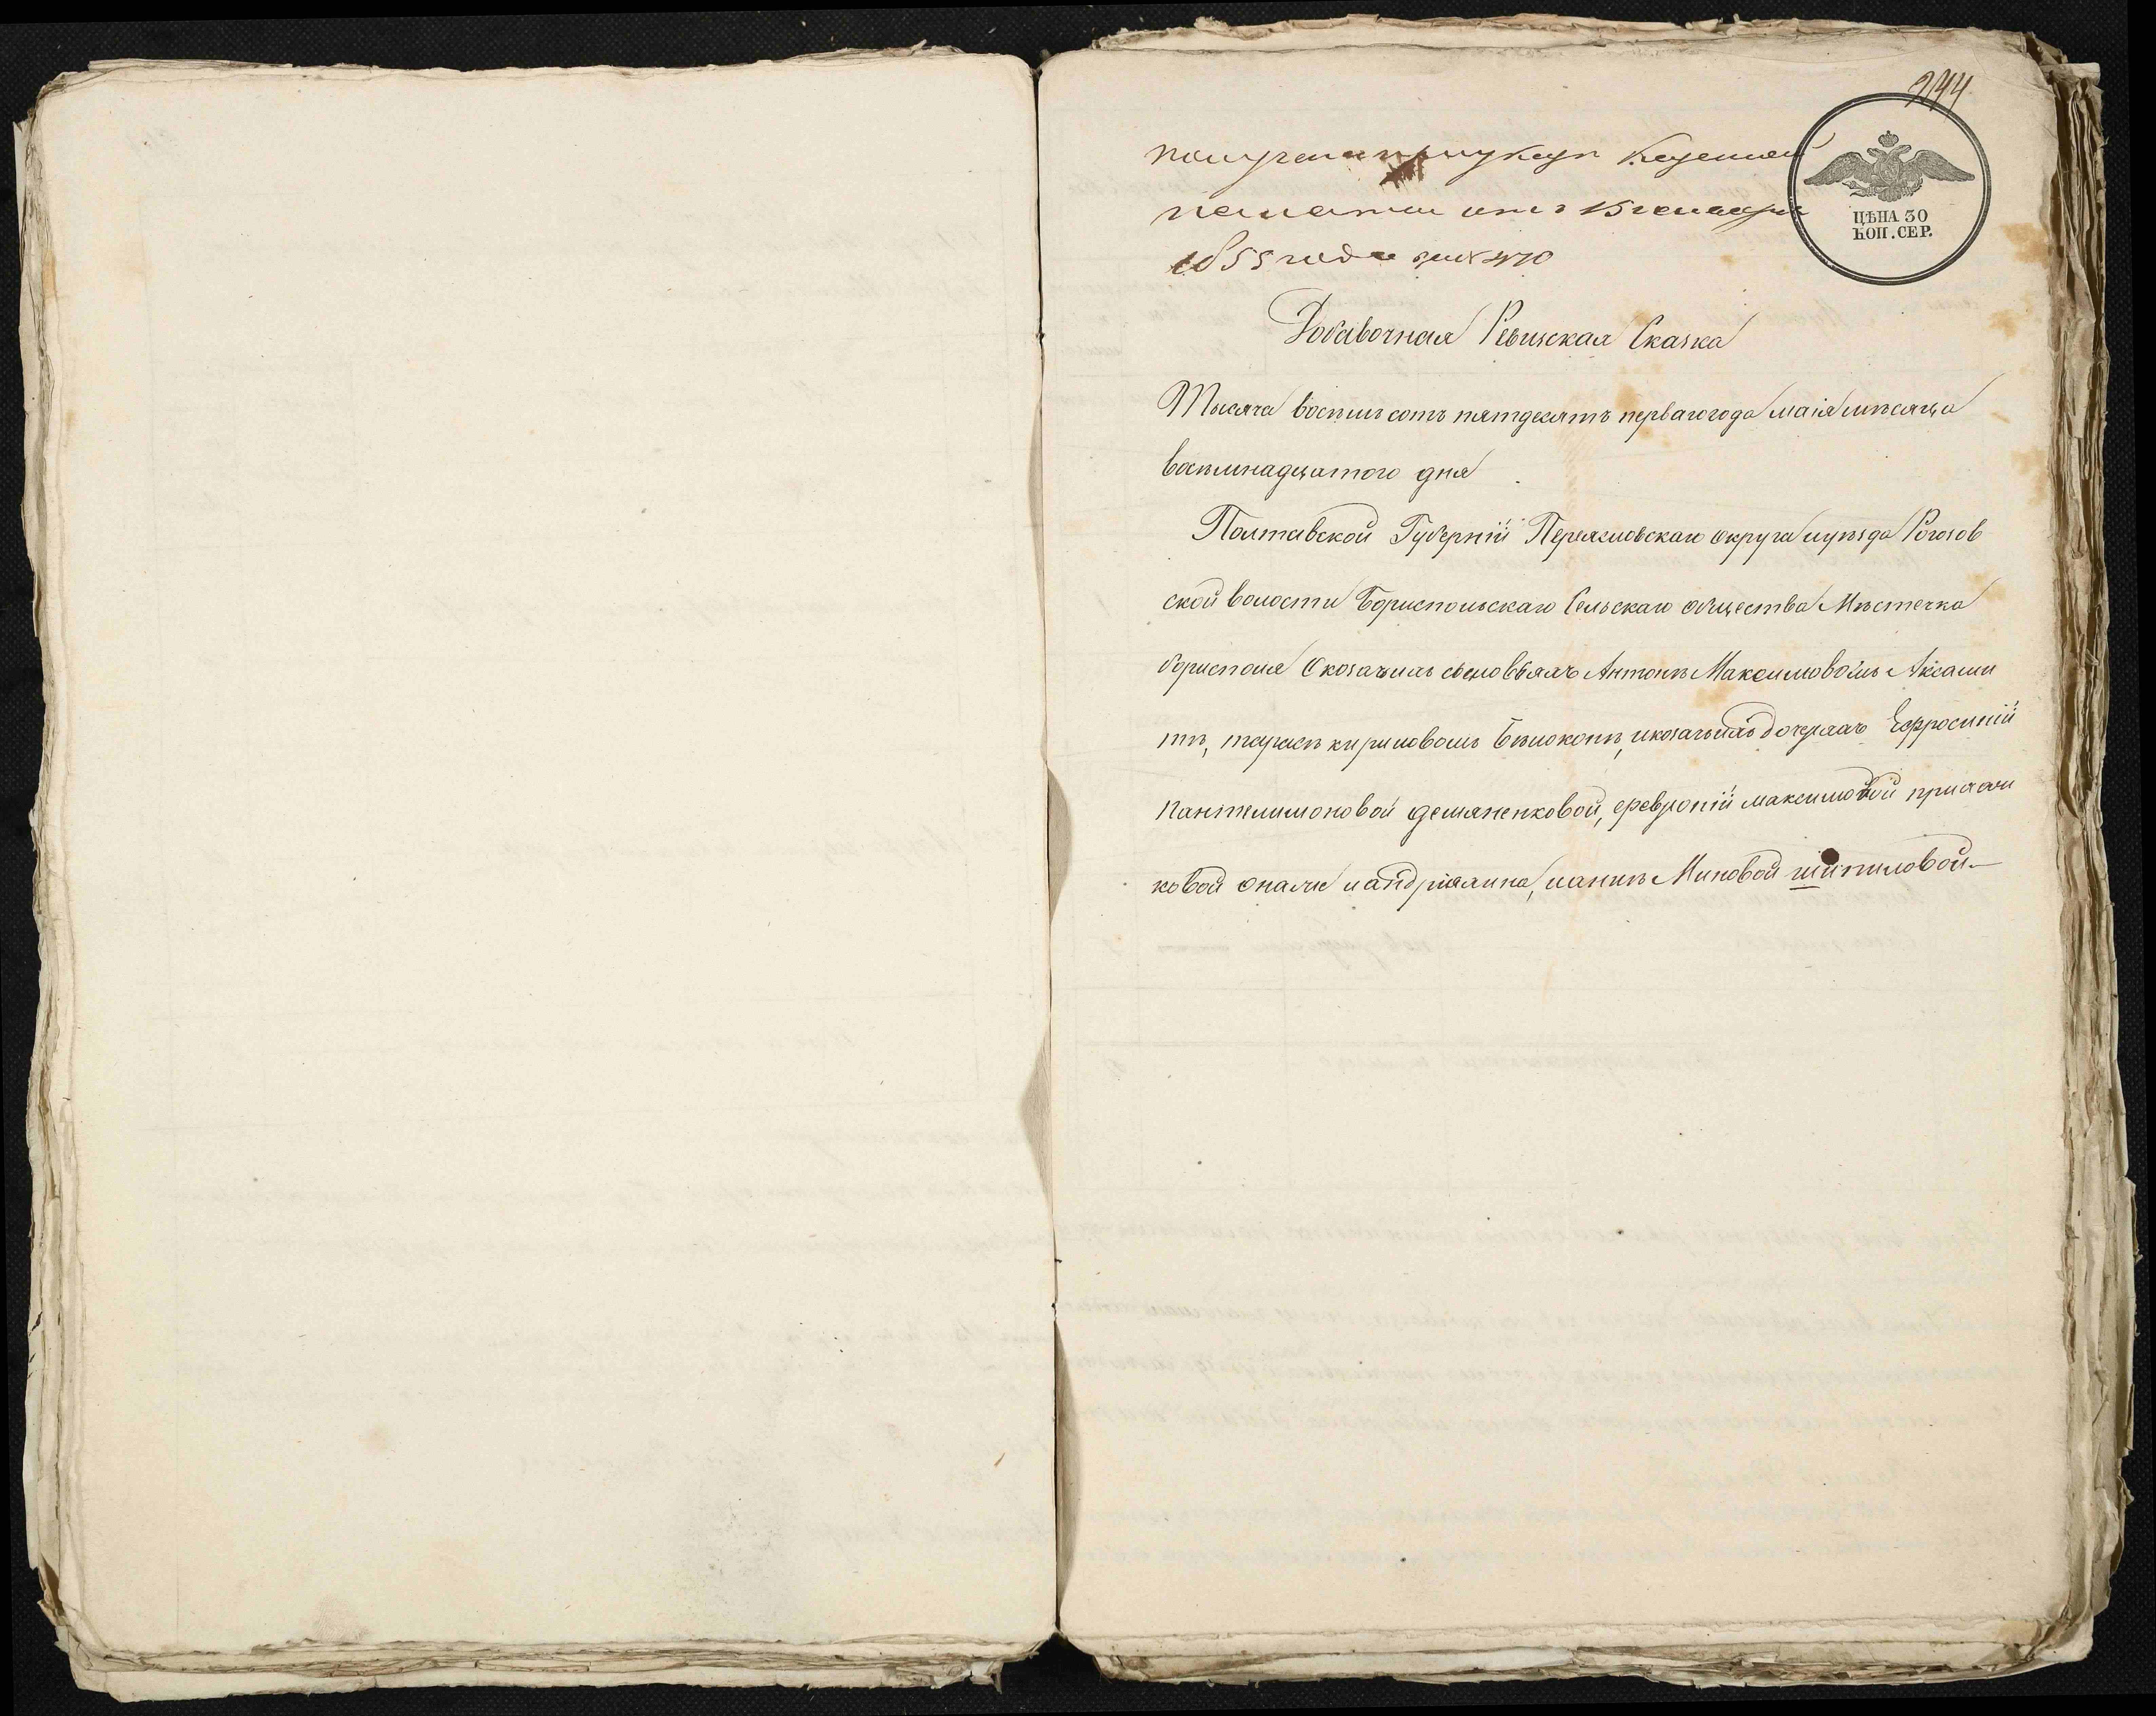 244
ЦѢНА 30
КОП. СЕР.
получена при указѣ Казенной
палаты отъ 15 генваря
1855 года
Добавочная Ревизская Сказка
Тысяча восѣмъ сотъ пятдесятъ перваго года маія мѣсяца
восѣмнадцатого дня
Полтавской Губерніи Переясловскаго округа иуѣзда Рогозов
ской волости Бориспольскаго Сельскаго общества Мѣстечка
борисполя Оказачихъ сыновьяхъ Антонѣ Максимовомъ Аксами
тѣ, тарасѣ кириловомъ Бѣлоконѣ, иказачьихъ дочеряхъ Ефросиніи
Пантелимоновой демяненковой, февроніи максимовой
ковой ианнѣ Миновой шипиловой